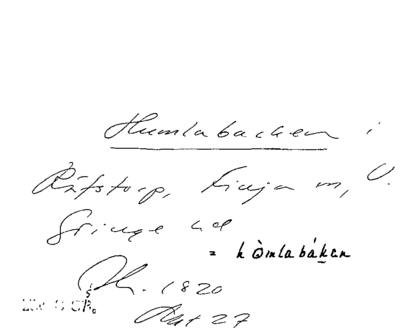 Humlabacken i
Röfstorp, Finja sn, V.
Göinge hd
= hòmlabákan
1820
Akt 27